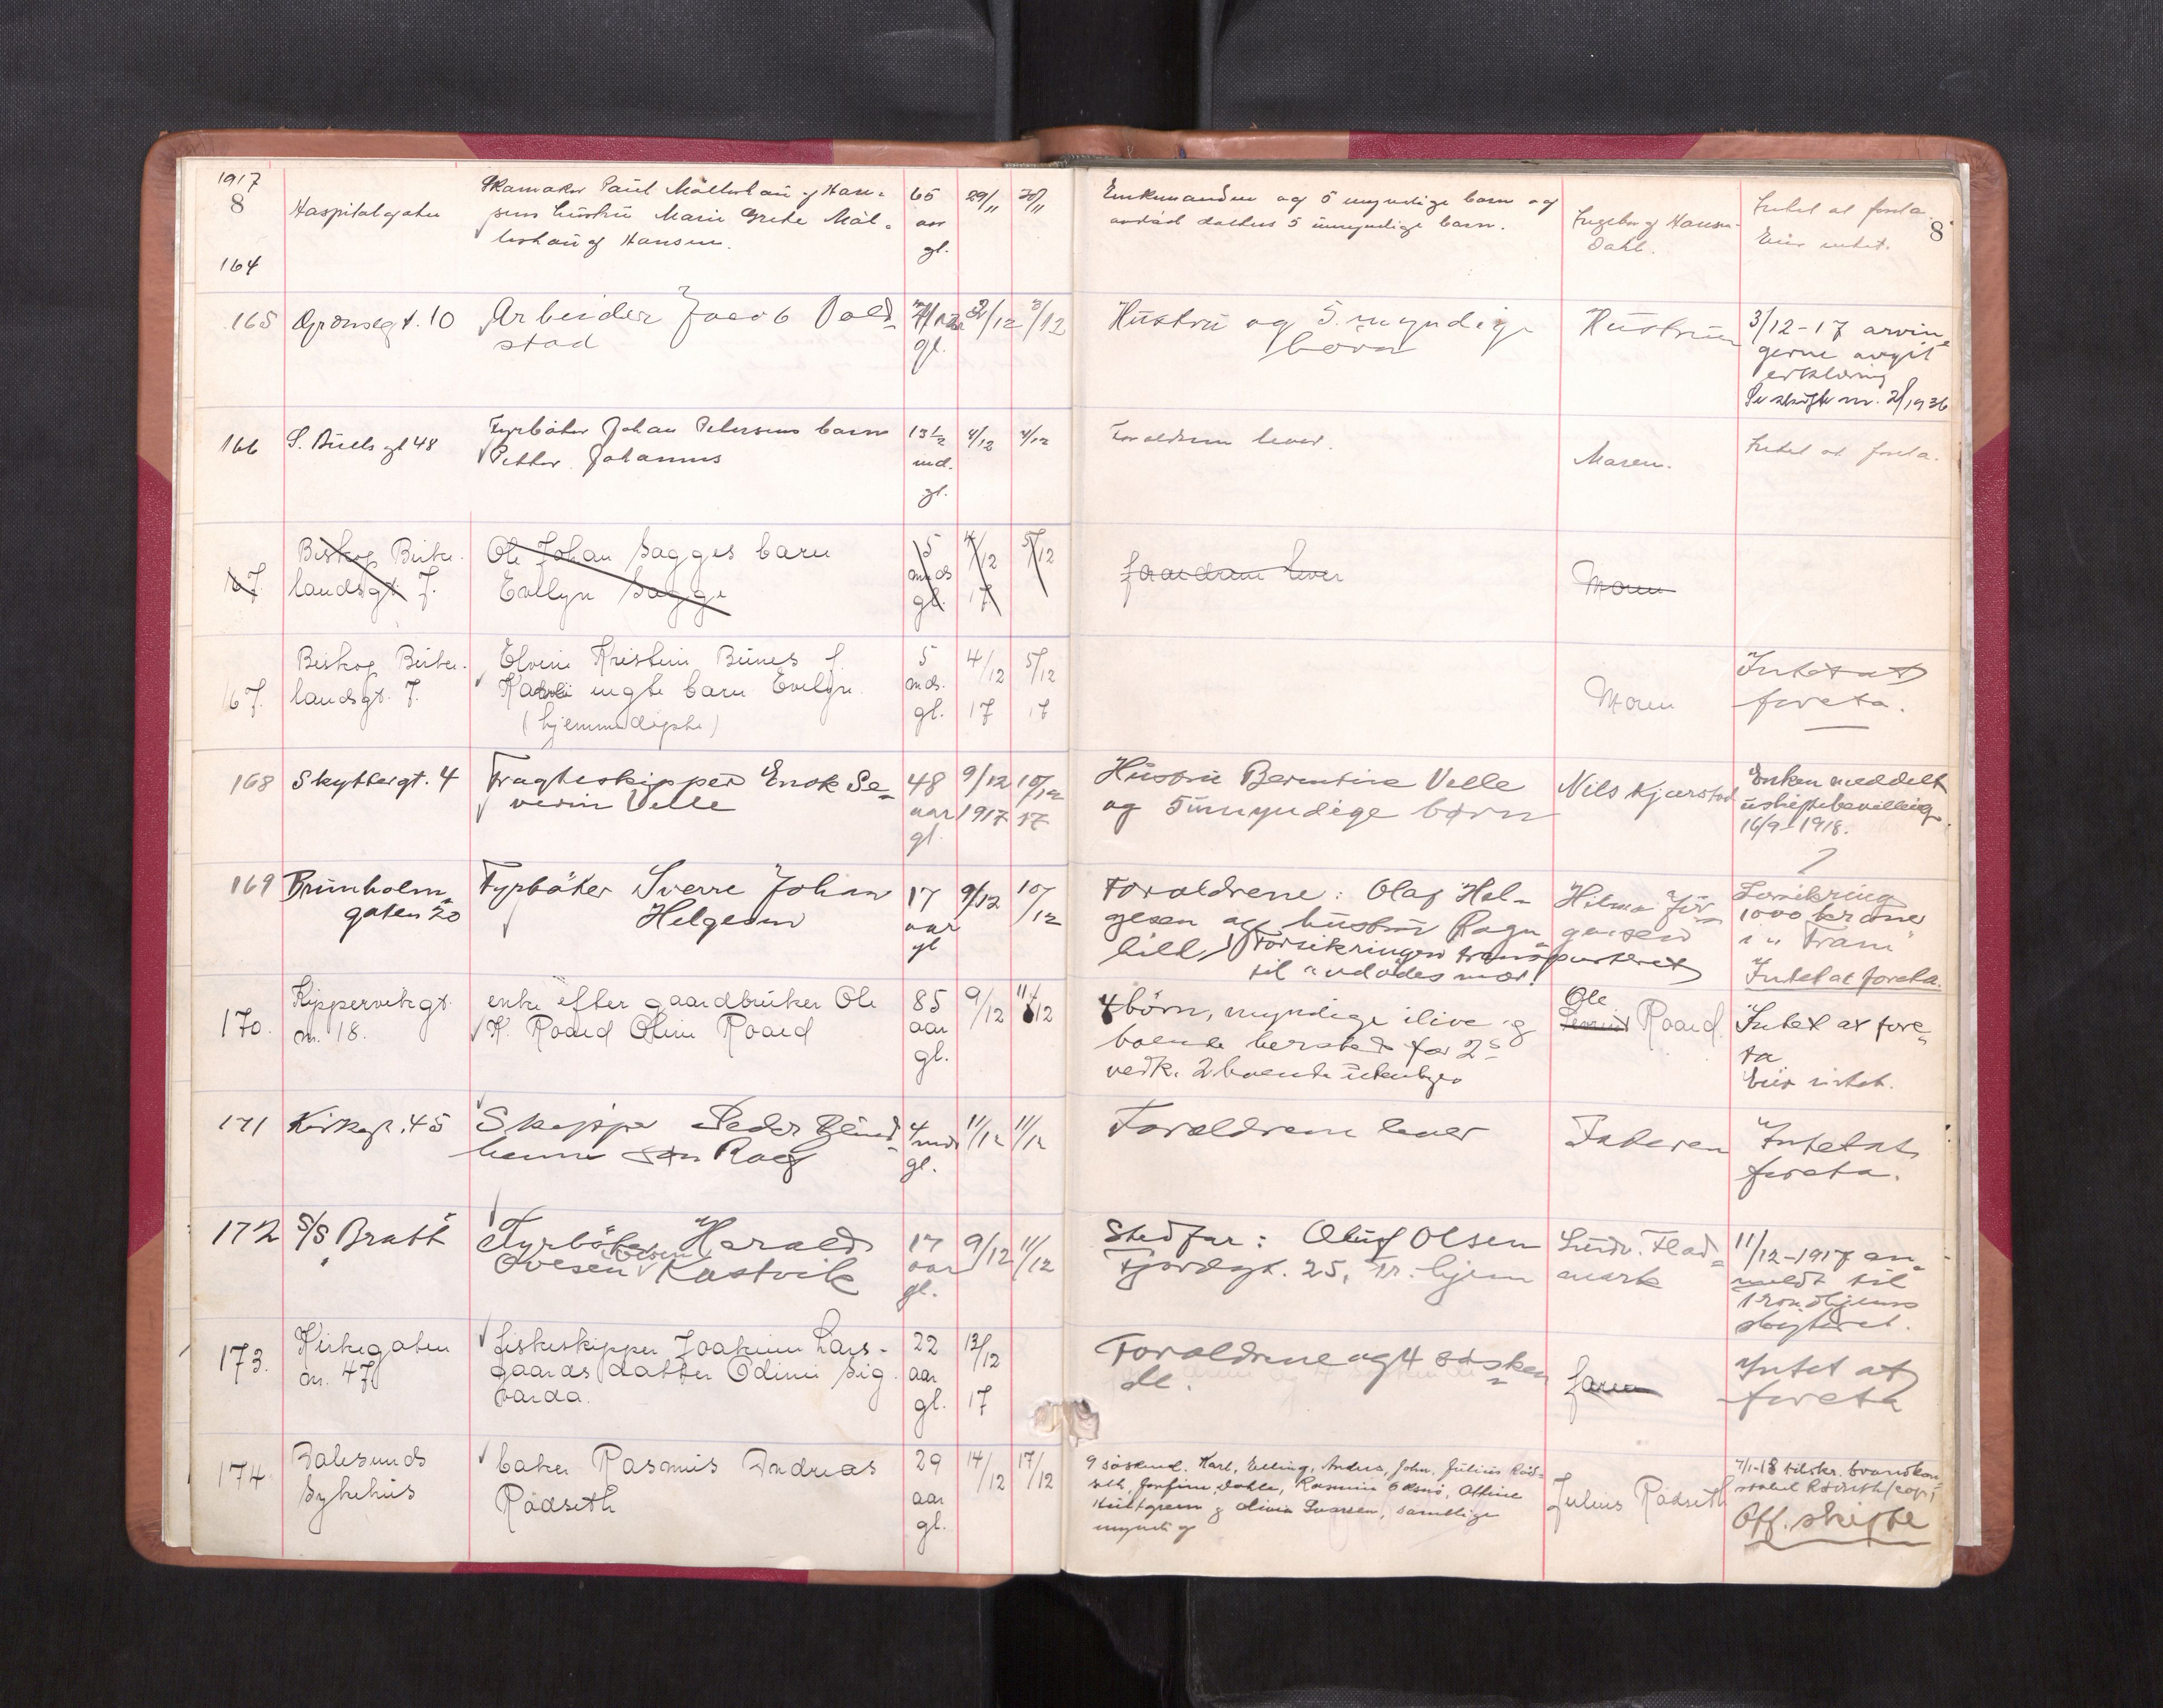 1917
8
164
Hospitalgaten
Skomaker Paul
husbru Marie Grete
Hansen.
65
aar
gl.
29/11
30/11
Enkemanden og 5 myndige barn og
datters 5 umyndige barn.
Ingeborg Hansen
Dahl.
Intet at foreta.
Eier intet.
8
165
Grønsegt. 10
Arbeider Jacob
stad
gl.
2/12
3/12
Hustru og 5 myndige
børn
Hustruen
3/12-17 arvin
gerne avgit
erklæring
Se skifte nr. 2/1936
166
S. Bullsgt 48
Fyrbøter Johan Petersens barn
Petter Johannes
13½
md.
gl.
4/12
4/12
Foreldrene lever.
Moren.
Intet at foreta.
167.
Biskop Birke-
landsgt. 7.
Ole Johan Sagges barn
Evelyn Sagge
5
mds
gl.
4/12
17
5/12
foraldrene lever
Moren
167.
Biskop Birke-
landsgt. 7.
Elvine Kristine Bunes f.
ugte barn Evelyn.
(hjemmedøpte)
5
mds.
gl.
4/12
17
5/12
17
Moren
Intet at
foreta.
168
Skyttergt. 4
Fragteskipper Enok Se-
verin Velle
48
aar
gl.
9/12
1917
10/12
17
Hustru Berentine Velle
og 5 umyndige børn
Nils Kjærstad
Enken meddelt
uskiftebevilling
16/9-1918.
169
Brunholm-
gaten 20
Fyrbøter Sverre Johan
Helgesen
17
aar
gl
9/12
10/12
Foraldrene: Olaf Hel-
gesen og hustru Ragn
hild. Forsikringen transporteret
til avdødes mor!
Hilmar Jør
gensen
Forsikring
1000 kroner
i "Fram"
Intet at foreta.
170.
Kippervikgt.
nr. 18.
enke efter gaardbruker Ole
K. Roald Oline Roald
85
aar
gl.
9/12
11/12
4 børn, myndige ilive og
boende hersteds for 2s
vedk. 2 boende utenbyes
Ole
Roald.
Intet at fore-
ta
Eier intet.
171
Kirkegt. 45
Skipper Peder Blind
heims søn Roef
4
mds
gl.
11/12
11/12
Foraldrene lever
Faderen
Intet at
foreta.
172
S/S Bratt
Fyrbøter Harald
Ovesen Kastvik
17
aar
gl.
9/12
11/12
Stedfar: Oluf Olsen
Fjordgt. 25, Tr. hjem
Ludv. Flad-
mark
11/12-1917 an-
meldt til
Trondhjems
skifteret.
173.
Kirkegaten
nr. 47
fiskeskipper Joakim Lars-
gaards datter Odine Sig
varda.
22
aar
gl.
13/12
17
Foraldrene og 4 søsken
de.
faren
Intet at
foreta
174
Aalesunds
Sykehus
baker Rasmus Andreas
Rødseth
29
aar
gl.
14/12
17/12
9 søskend. Karl, Elling, Anders, John, Julius Rød-
seth, Josefine Dahle, Rasmine Oksnø, Oltine
Hultgreen og Olivia Svorsen, samtlige
myndig
Julius Rødseth
7/1-18 tilskr. brandkon-
stabel Rødseth/copi
Off. skifte